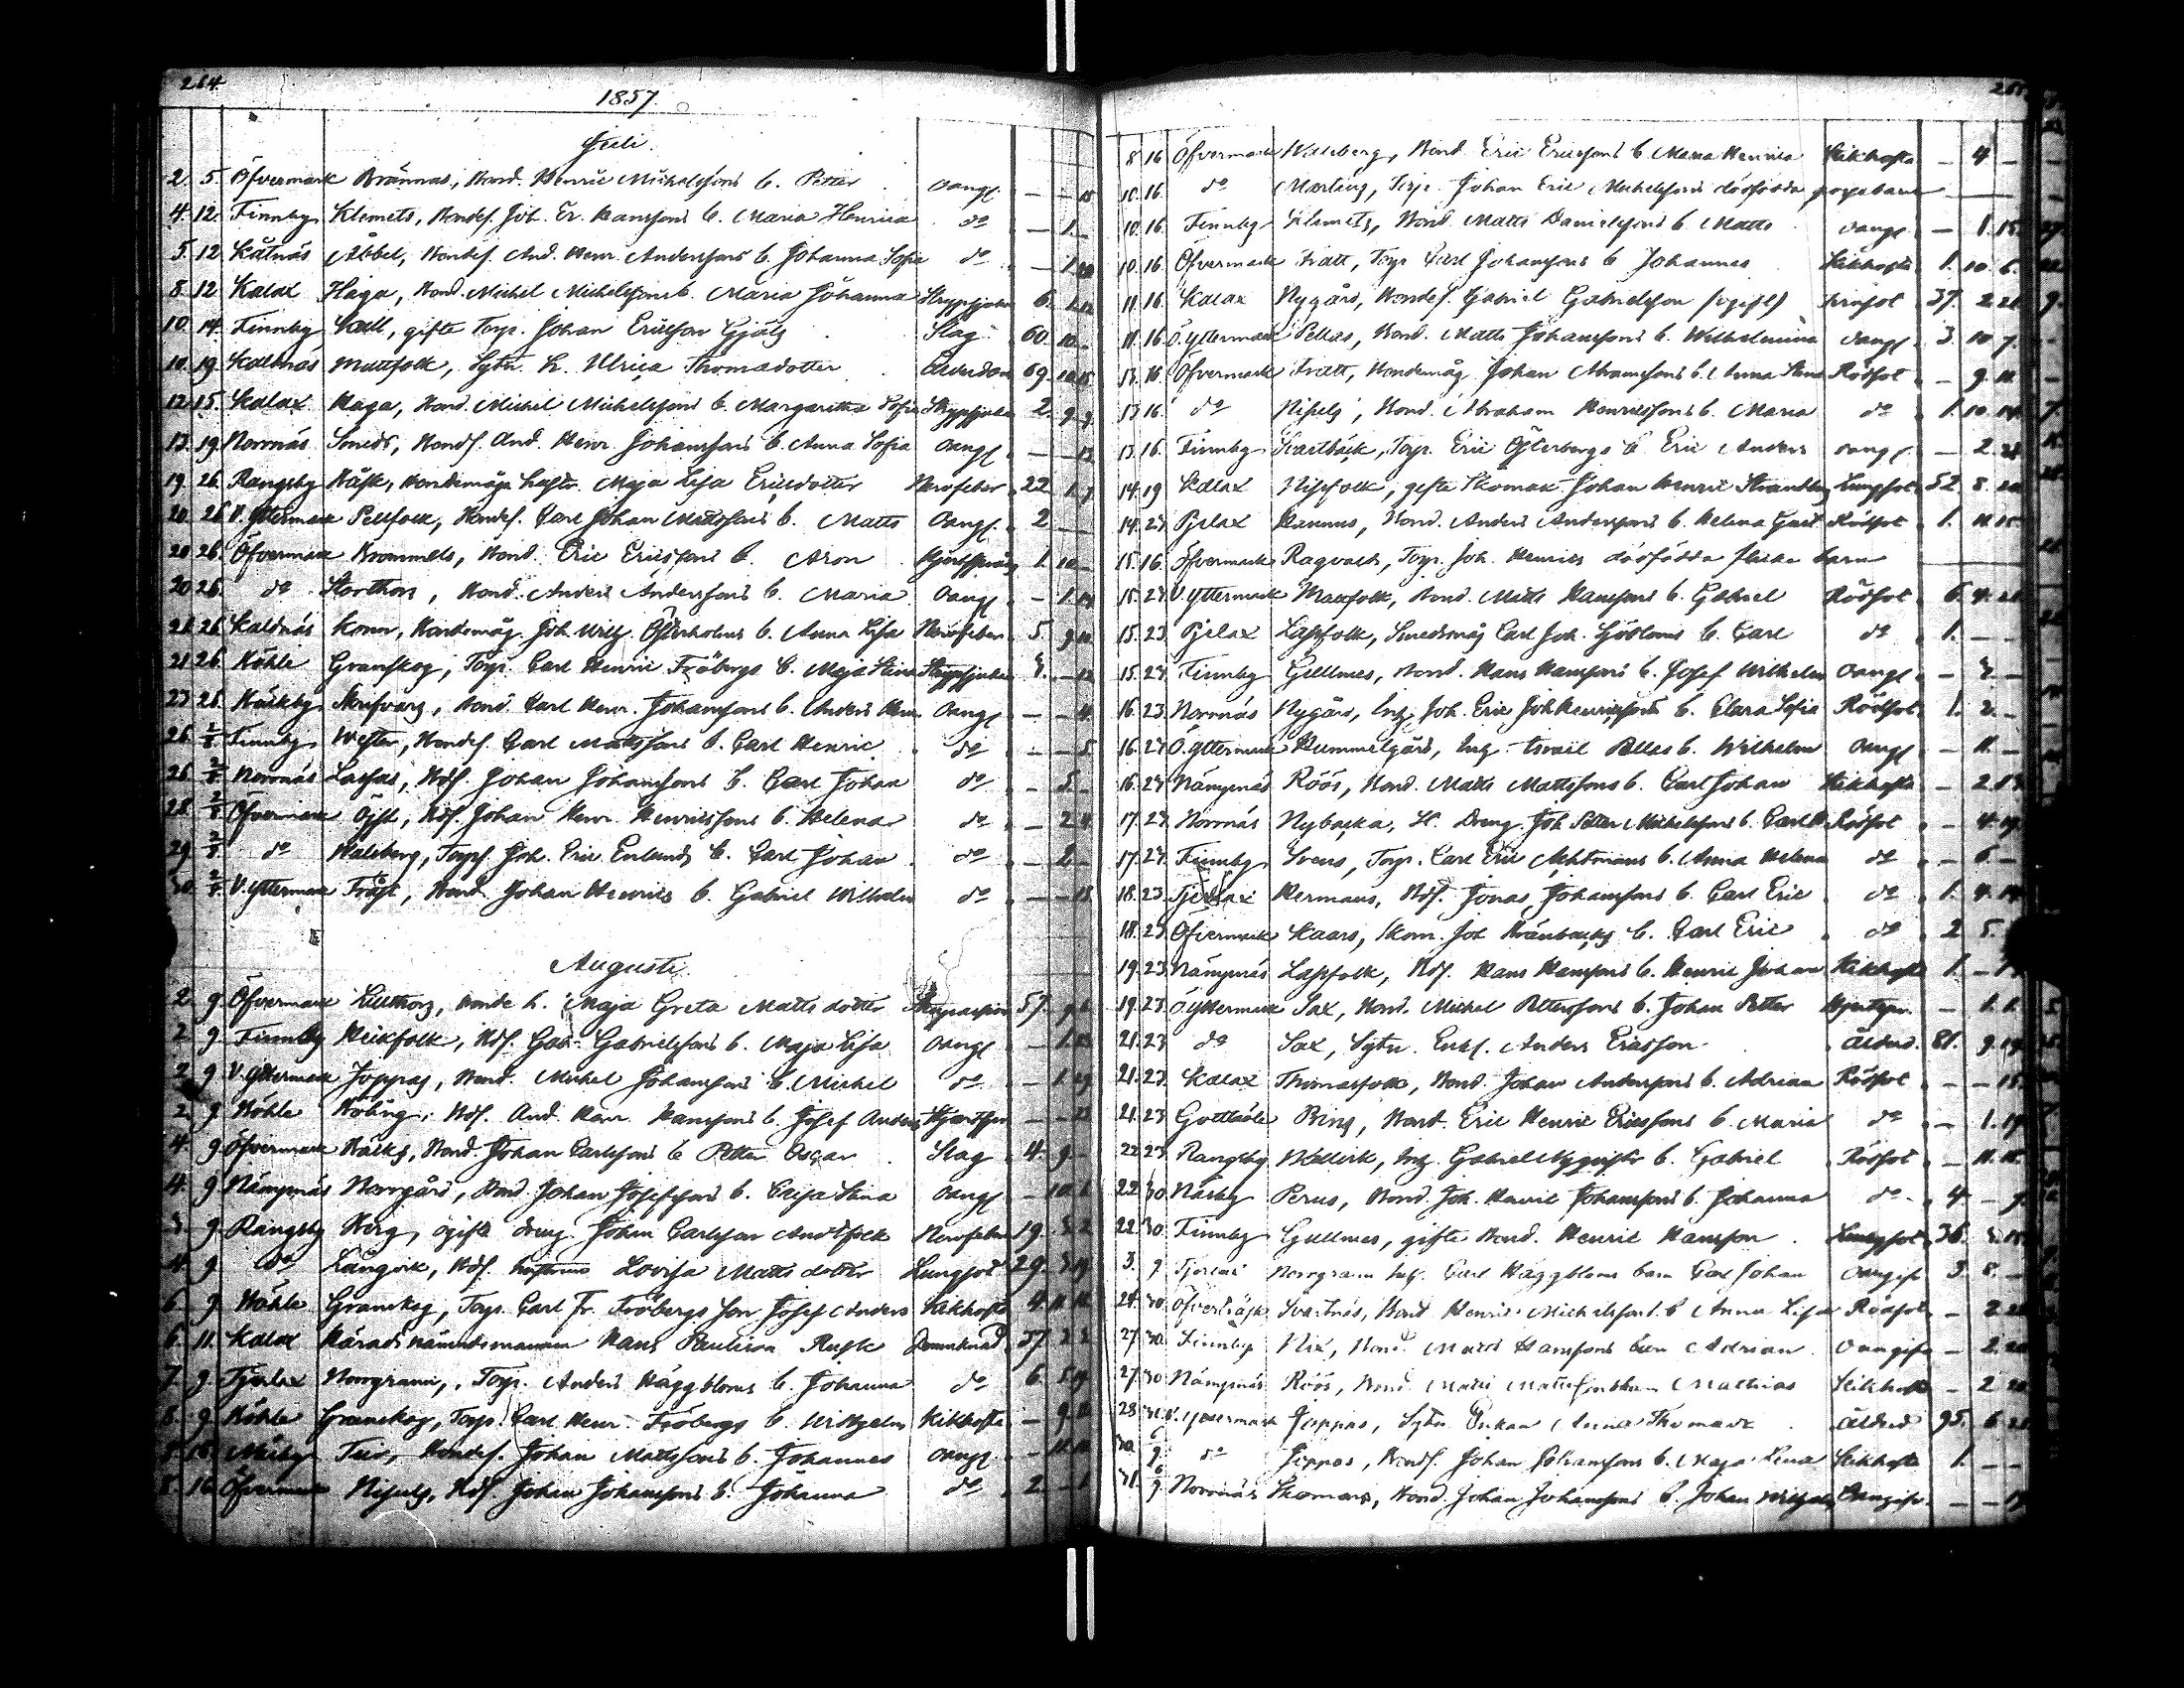 264
1857
Juli
2. 5. Öfvermark Brännas, Bond. Henric Michelssons b. Petter oangf — — 15
4. 12. Finnby Klemets, Bondes. Joh. Er. Hanssons b. Maria Henrica do — 1. —
5. 12 Kåtnäs Åbbel, Bondes. And. Henr. Anderssons b. Johanna Sofia do — 1.
8. 12 Kalax Haga, Bond. Michel Michelssons b. Maria Johanna Strypsjukn 6. 1.
10. 14. Finnby Kall, gifte Torp. Johan Ericsson Gjäls Slag 60. 10. —
10. 19. Kaldnäs Mattfolk, Sytn. h. Ulrica Thomadotter Ålderdom 69. 10. 15
12. 15. Kalax Haga, Bond. Michel Michelssons b. Margaretha Sofia Strypsjukn 2. 9. 9
13. 19. Norrnäs Smeds, Bonds. And. Henr. Johanssons b. Anna Sofia oangf — — 13
19. 26. Rangsby Håsk, Bondemågs hustr. Maja Lisa Ericsdotter Nervfeber 22 1. 7
20. 26 V. Yttermark Pellfolk, Bondes. Carl Johan Mattssons b. Matts Oangf. 2 — —
20. 26. Öfvermark Brommels, Bond. Eric Ericssons b. Aron 1. 10. —
20 26. do Storthors, Bond. Anders Anderssons b. Maria Oangf — 1.
21 26. Kaldnäs Korw, Bondemåg. Joh. Wilh. Österholms b. Anna Lisa Nervfeber 5. 9.
21 26. Böhle Granskog, Torp. Carl Henric Fröbergs b. Maja Stina Strypsjukn — 12
23 26. Näsby Skrifvars, Bond. Carl Henr. Johanssons b. Anders Henr. Oangf — —
26. 2/8 Finnby Wester, Bondes. Carl Mattssons b. Carl Henric do — — 5.
26. 2/8 Norrnäs Lassas, Bds. Johan Johanssons b. Carl Johan do — 5. —
28. 2/8 Öfvermark Öjst, Bds. Johan Henr. Henricssons b. Helena do — 2
29. 2/8 do Walsberg, Torps. Joh. Eric Erlunds b. Carl Johan do — 2 —
30. 2/8 V. Yttermark Tråst, Bond. Johan Henrics b. Gabriel Wilhelm do — — 15
Augusti
2. 9. Öfvermark Lillthors, Bonde h. Maja Greta Matts dotter 57. 9.
2 9. Finnby Heikfolk, Bds. Gab. Gabrielssons b. Maja Lisa Oangf — 1.
2 9 V. Yttermark Joppas, Bond. Michel Johanssons b. Michel do — 1. 19
2. 9. Böhle Böling, Bds. And. Henr. Hanssons b. Josef Anders — —
4. 9. Öfvermark Bäcks, Bond. Johan Carlssons b. Petter Oscar Slag 4. 9. —
4. 9 Nämpnäs Norrgård, Bond. Johan Josefssons b. Cajsa Stina Oangf — 10.
3. 9. Rangsby Berg, ogifte dreng. Johan Carlsson Nervfeber 19. 3. 2
4. 9 do Långvik, Bds. hustrun Lovisa Matts dotter Lungsot 29. 3.
6. 9 Böhle Granskog, Torp. Carl Fr. Fröbergs son Josef Anders Kikhosta 4. 11.
6. 11. Kalax Härads nämndemannen Hans Paulison Rusk Drunknad 37 3. 2.
7. 9. Tjerlax Norrgrann, Torp. Anders Häggbloms b. Johanna do 6. 5. 19
8. 9. Böhle Granskog, Torp. Carl Henr. Fröbergs b. Wilhelm Kikhosta — 9.
8. 16. Näsby Tuir, Bondes. Johan Mattssons b. Johannes oangf — 11.
8. 16. Öfvermark Nissels, Bds. Johan Johanssons b. Johanna do 2 — 1
265
8 16 Öfvermark Walsberg, Bond. Eric Ericssons b. Maria Henrica Kikhosta — 4 —
10. 16. do Mårtens, Torp. Johan Eric Michelssons dödfödda gossebarn —
10. 16. Finnby Klemets, Bond. Matts Danielssons b. Matts oangf — 1. 15.
10. 16. Öfvermark Frätt, Torp. Carl Johanssons b. Johannes Kikhosta 1. 10. 6.
11. 16. Kalax Nygård, Bondes. Gabriel Gabrielsson (ogift) 37. 2 21
11. 16. Ö. Yttermark Pellas, Bond. Matts Johanssons b. Wilhelmina oangf 3. 10 7.
13. 16. Öfvermark Frätt, Bondemåg Johan Abramssons b. Anna Stina Rödsot — 9.
13 16. do Nissels, Bond. Abraham Henricssons b. Maria do 1. 10.
13 16. Finnby Svartbäck, Torp. Eric Österbergs b. Eric Anders oangf — 2.
14. 19 Kalax Nissfolk, gifte Skomak. Johan Henric Lungsot 52. 8.
14. 23 Pjelax Hannus, Bond. Anders Anderssons b. Helena Rödsot 1. 11. 15.
15. 16. Öfvermark Ragvals, Torp. Joh. Henrics dödfödda flicka barn —
15. 23. V. Yttermark Maxfolk, Bond. Matts Hanssons b. Gabriel Rödsot 6. 4.
15. 23. Pjelax Lassfolk, Smedsmåg Carl Joh. Sjöbloms b. Carl do 1. — —
15. 23 Finnby Gullmes, Bond. Hans Hanssons b. Josef Wilhelm Oangf — 2. —
16. 23. Norrnäs Nygård, Inh. Joh. Eric Joh. Henricssons b. Clara Sofia Rödsot 1. 2. —
16. 23 Ö. Yttermark Hummelgård, Inh. Israel Pelles b. Wilhelm Oangf — 11. —
16. 23 Nämpnäs Röös, Bond. Matts Mattssons b. Carl Johan Kikhosta — 2.
17. 23. Norrnäs Nybacka, St. Dreng. Joh. Petter Michelssons b. Carl Rödsot — 4. 19.
17. 23. Finnby Svens, Torp. Carl Eric Åhlmans b. Anna Helena do — 6. —
18. 23. Tjerlax Hermans, Bds. Jonas Johanssons b. Carl Eric do 1. 4. 14
18. 23. Öfvermark Kaars, Skom. Joh. Kränbacks b. Carl Eric do 2 5.
19. 23. Nämpnäs Lassfolk, Bds. Hans Hanssons b. Henric Johan Kikhosta 1. —
19. 23. Ö. Yttermark Sax, Bond. Michel Pettersons b. Johan Petter — 1. 1.
21. 23 do Sax, Sytn. Enkl. Anders Ericsson Ålderd. 81. 9. 14
21. 23. Kalax Thomasfolk, Bond. Johan Anderssons b. Adrian Rödsot — — 15.
21. 23 Gottböle Bings, Bond. Eric Henric Ericssons b. Maria do — 1. 19
22. 23. Rangsby Wallvik, Inh. Gabriel Nyqvists b. Gabriel Rödsot — 11. 15.
22. 30 Näsby Perus, Bond. Joh. Henric Johanssons b. Johanna do 4. — 9.
22. 30. Finnby Gullmes, gifte Bond. Henric Hansson Lungsot 36. 5. 15
3. 9 Tjerlax Norrgrann Inh. Carl Häggbloms barn Carl Johan Oangif 3. 8. —
24. 30. Öfverträsk Svartnäs, Bond. Henric Michelssons b. Anna Lisa Rödsot — 2
27. 30. Finnby Nix, Bond. Matts Hanssons barn Adrian Oangifv — 2.
27. 30 Nämpnäs Röös, Bond. Matts Mattssons barn Mathias Kikhosta — 2 20
28 30 V. Yttermark Joppas, Sytn. Enkan Anna Thomasd. Ålderd 95. 6. 21
30. 6/9 do Joppas, Bonds. Johan Johanssons b. Maja Lena Kikhosta 1. — —
31. 6/9 Norrnäs Skomars, Bond. Johan Johanssons b. Johan Wilhelm Oangifv — — 19